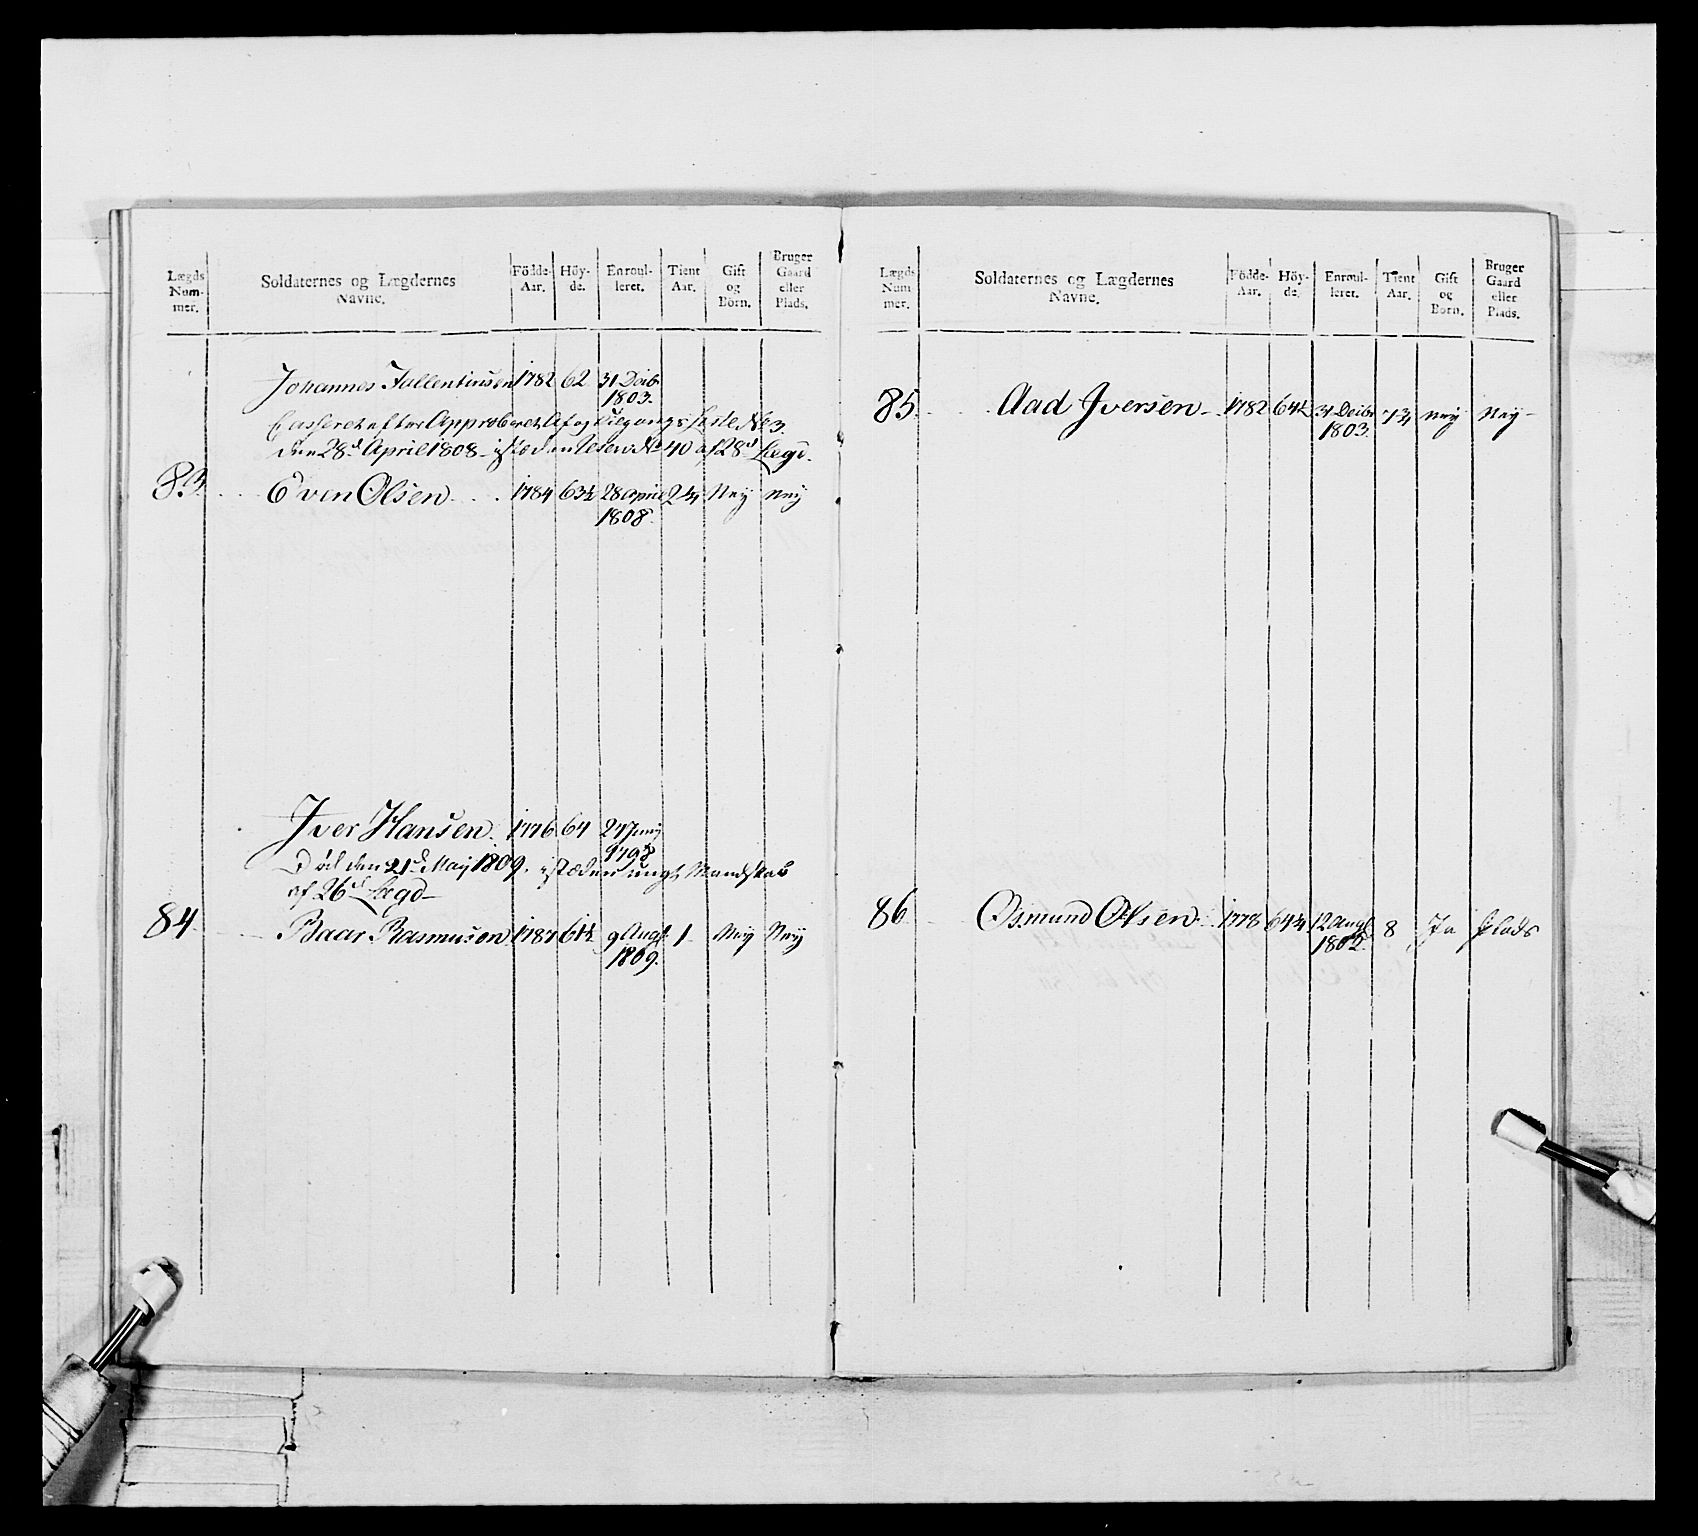 Lægds Num- mer. Soldaternes og Lægdernes Navne. Födde- Aar. Höy- de. Enroul- leret. Tient Aar. Gift og Börn. Bruger Gaard eller Plads.
Johannes Fallentinsen 1782 62 31 Decbr 1803.
Casseret efter Approberet Af og Tilgangs Liste No 3
den 28d April 1808 - istæden No 40 af 28d Lægd.
83. Even Olsen 1784 63½ 28 April 1808. 2¼ Neÿ neÿ
Iver Hansen. 1776 64 27 Junÿ 1798
Död den 21d Maÿ 1809. istæden ungt Mandskab
af 26d Lægd -
84. Baar Rasmuson 1787 61½ 9 Augt 1809. 1 Neÿ Neÿ
Lægds Num mer. Soldaternes og Lægdernes Navne. Födde- Aar. Höy- de. Enroul- leret. Tient Aar. Gift og Börn. Bruger Gaard eller Plads.
85. Aad Iversen 1782 64½ 31 Decbr 1803. neÿ Neÿ
86 Osmund Olsen 1778 64¼ 12 Augt 1802. 8 Ja Plads